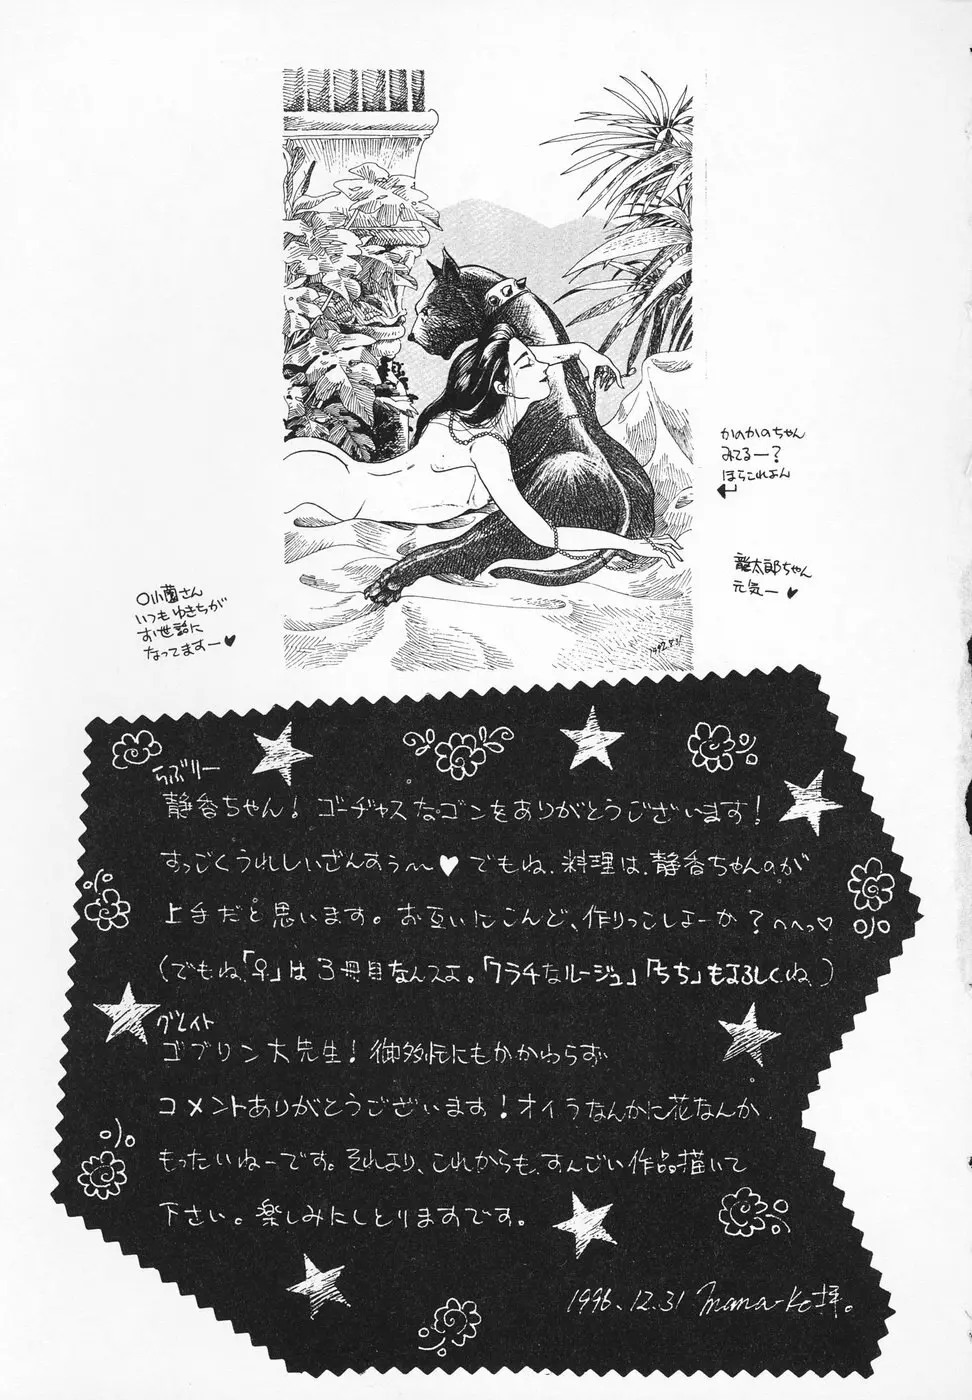 かのかのちゃん
みてるー?
ほらこれよん
龍太郎ちゃん
元気ー♥
小薗さん
いつもゆきちが
お世話に
なってますー♥
1992.5.31
らぶりー
静香ちゃん!ゴーヂャスなゴンをありがとうございます!
すっごくうれしいざんすぅ〜♥でもね、料理は、静香ちゃんのが
上手だと思います。お互いにこんど、作りっこしよーか?へへっ♡
(でもね、「♀」は3冊目なんスよ。「フラチなルージュ」「うち」もよろしくね)
グレイト
ゴブリン大先生!御多忙にもかかわらず
コメントありがとうございます!オイラなんかに花なんか
もったいねーです。それより、これからも、すんごい作品描いて
下さい。楽しみにしとりますです。
1996.12.31 mana-Ko拝。